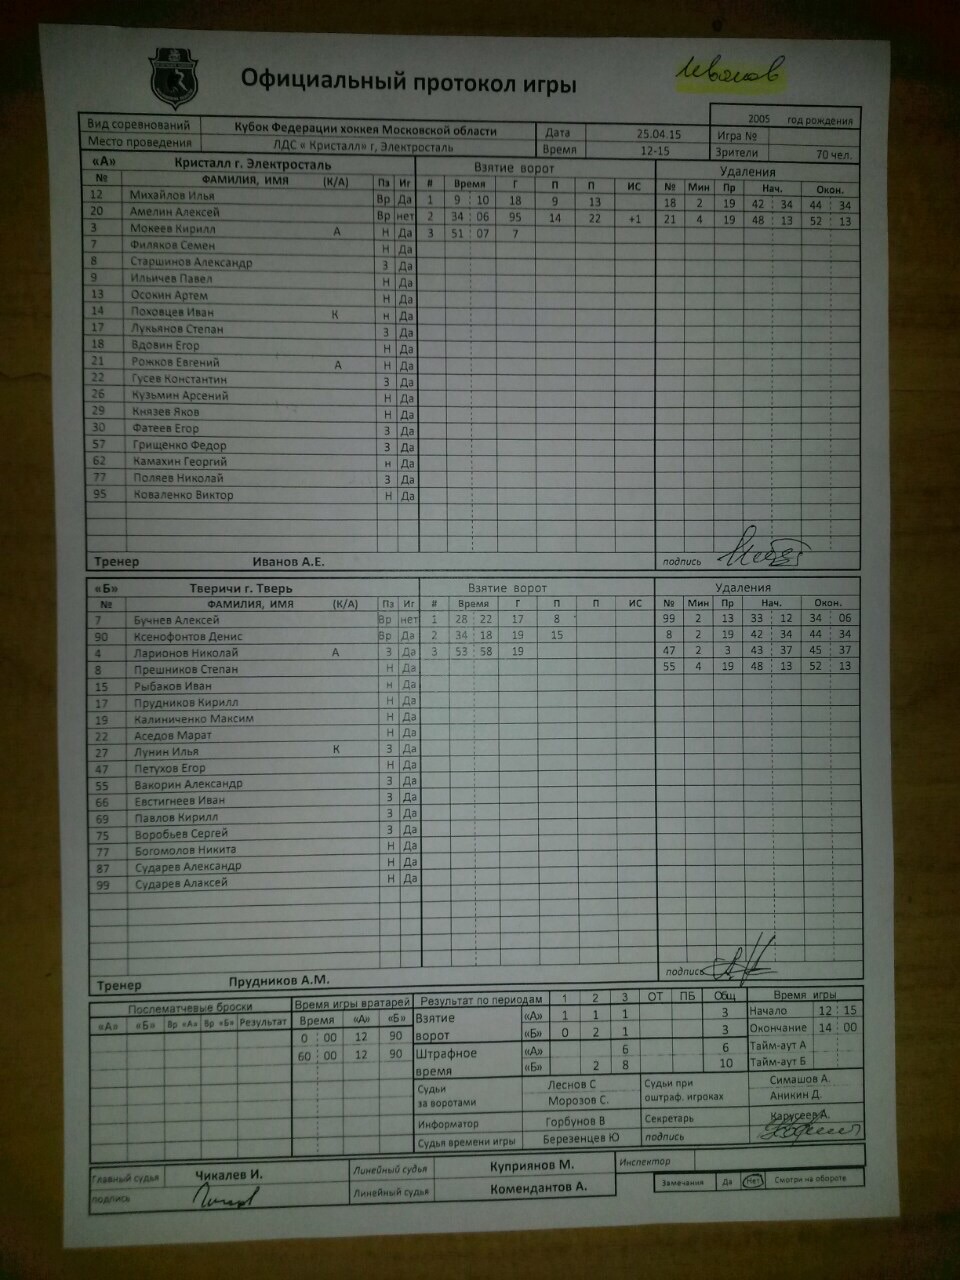 Официальный протокол игры
Иванов
2005 год рождения
Вид соревнований Кубок Федерации хоккея Московской области Дата 25.04.15 Игра №
Место проведения ЛДС « Кристалл» г, Электросталь Время 12-15 Зрители 70 чел.
«А» Кристалл г. Электросталь Взятие ворот Удаления
№ ФАМИЛИЯ, ИМЯ (К/А) Пз Иг # Время Г П П ИС № Мин Пр Нач. Окон.
12 Михайлов Илья Вр Да 1 9 : 10 18 9 13 18 2 19 42 : 34 44 : 34
20 Амелин Алексей Вр нет 2 34 : 06 95 14 22 +1 21 4 19 48 : 13 52 : 13
3 Мокеев Кирилл А Н Да 3 51 : 07 7
7 Филяков Семен Н Да
8 Старшинов Александр З Да
9 Ильичев Павел Н Да
13 Осокин Артем Н Да
14 Поховцев Иван К н Да
17 Лукьянов Степан З Да
18 Вдовин Егор Н Да
21 Рожков Евгений А Н Да
22 Гусев Константин З Да
26 Кузьмин Арсений Н Да
29 Князев Яков Н Да
30 Фатеев Егор З Да
57 Грищенко Федор З Да
62 Камахин Георгий н Да
77 Поляев Николай З Да
95 Коваленко Виктор Н Да
Тренер Иванов А.Е. подпись
«Б» Тверичи г. Тверь Взятие ворот Удаления
№ ФАМИЛИЯ, ИМЯ (К/А) Пз Иг # Время Г П П ИС № Мин Пр Нач. Окон.
7 Бучнев Алексей Вр нет 1 28 : 22 17 8 99 2 13 33 : 12 34 : 06
90 Ксенофонтов Денис Вр Да 2 34 : 18 19 15 8 2 19 42 : 34 44 : 34
4 Ларионов Николай А З Да 3 53 : 58 19 47 2 3 43 : 37 45 : 37
8 Прешников Степан Н Да 55 4 19 48 : 13 52 : 13
15 Рыбаков Иван н Да
17 Прудников Кирилл Н Да
19 Калиниченко Максим Н Да
22 Аседов Марат Н Да
27 Лунин Илья К З Да
47 Петухов Егор Н Да
55 Вакорин Александр З Да
66 Евстигнеев Иван З Да
69 Павлов Кирилл З Да
75 Воробьев Сергей З Да
77 Богомолов Никита Н Да
87 Сударев Александр Н Да
99 Сударев Алаксей Н Да
Тренер Прудников А.М. подпись
Послематчевые броски Время игры вратарей Результат по периодам 1 2 3 ОТ ПБ Общ Время игры
«А» «Б» Вр «А» Вр «Б» Результат Время «А» «Б» Взятие ворот «А» 1 1 1 3 Начало 12 : 15
0 : 00 12 90 «Б» 0 2 1 3 Окончание 14 : 00
60 : 00 12 90 Штрафное время «А» 6 6 Тайм-аут А
«Б» 2 8 10 Тайм-аут Б
Судьи за воротами Леснов С Судьи при оштраф. игроках Симашов А.
Морозов С. Аникин Д.
Информатор Горбунов В Секретарь Карусеев А.
Судья времени игры Березенцев Ю подпись
Главный судья Чикалев И. Линейный судья Куприянов М. Инспектор
подпись Линейный судья Комендантов А. Замечания Да Нет Смотри на обороте